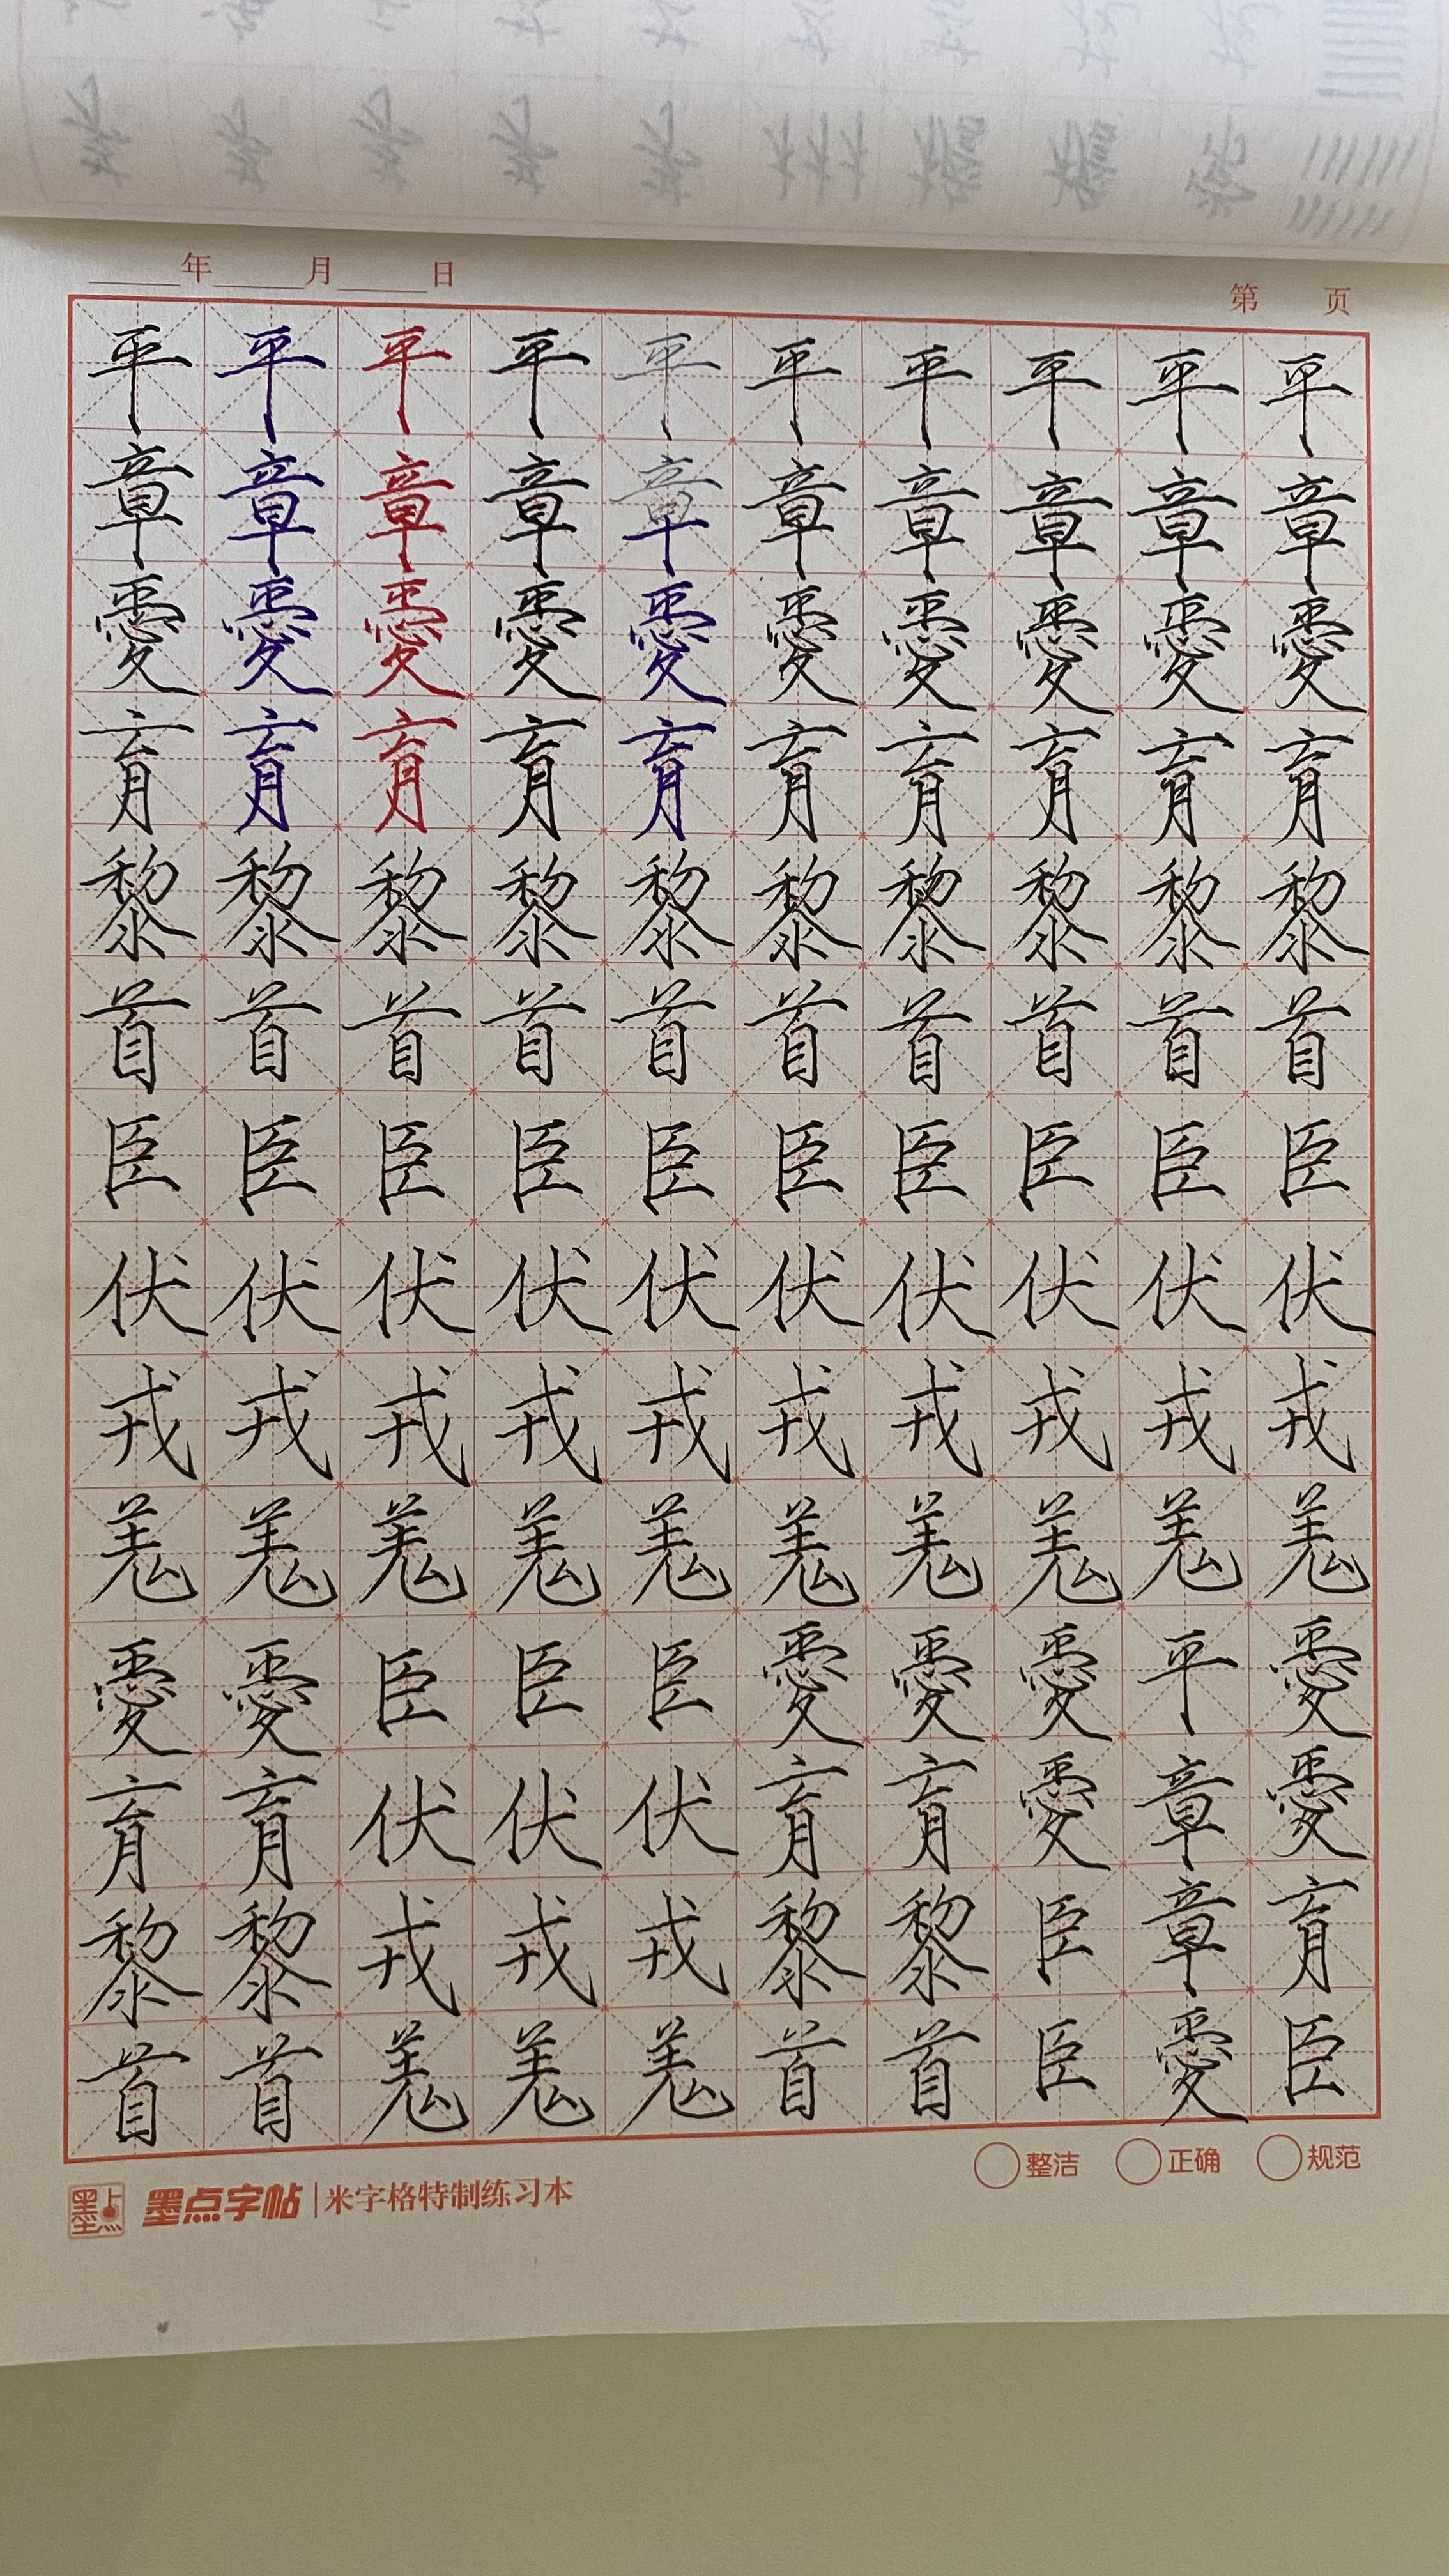 年 月 日
第 页
平平平平平平平平平平
章章章章章章章章章章
愛愛愛愛愛愛愛愛愛愛
育育育育育育育育育育
黎黎黎黎黎黎黎黎黎黎
首首首首首首首首首首
臣臣臣臣臣臣臣臣臣臣
伏伏伏伏伏伏伏伏伏伏
戎戎戎戎戎戎戎戎戎戎
羌羌羌羌羌羌羌羌羌羌
愛愛臣臣臣愛愛愛平愛
育育伏伏伏育育愛章愛
黎黎戎戎戎黎黎臣章育
首首羌羌羌首首臣愛臣
整洁 正确 规范
墨点 墨点字帖 | 米字格特制练习本